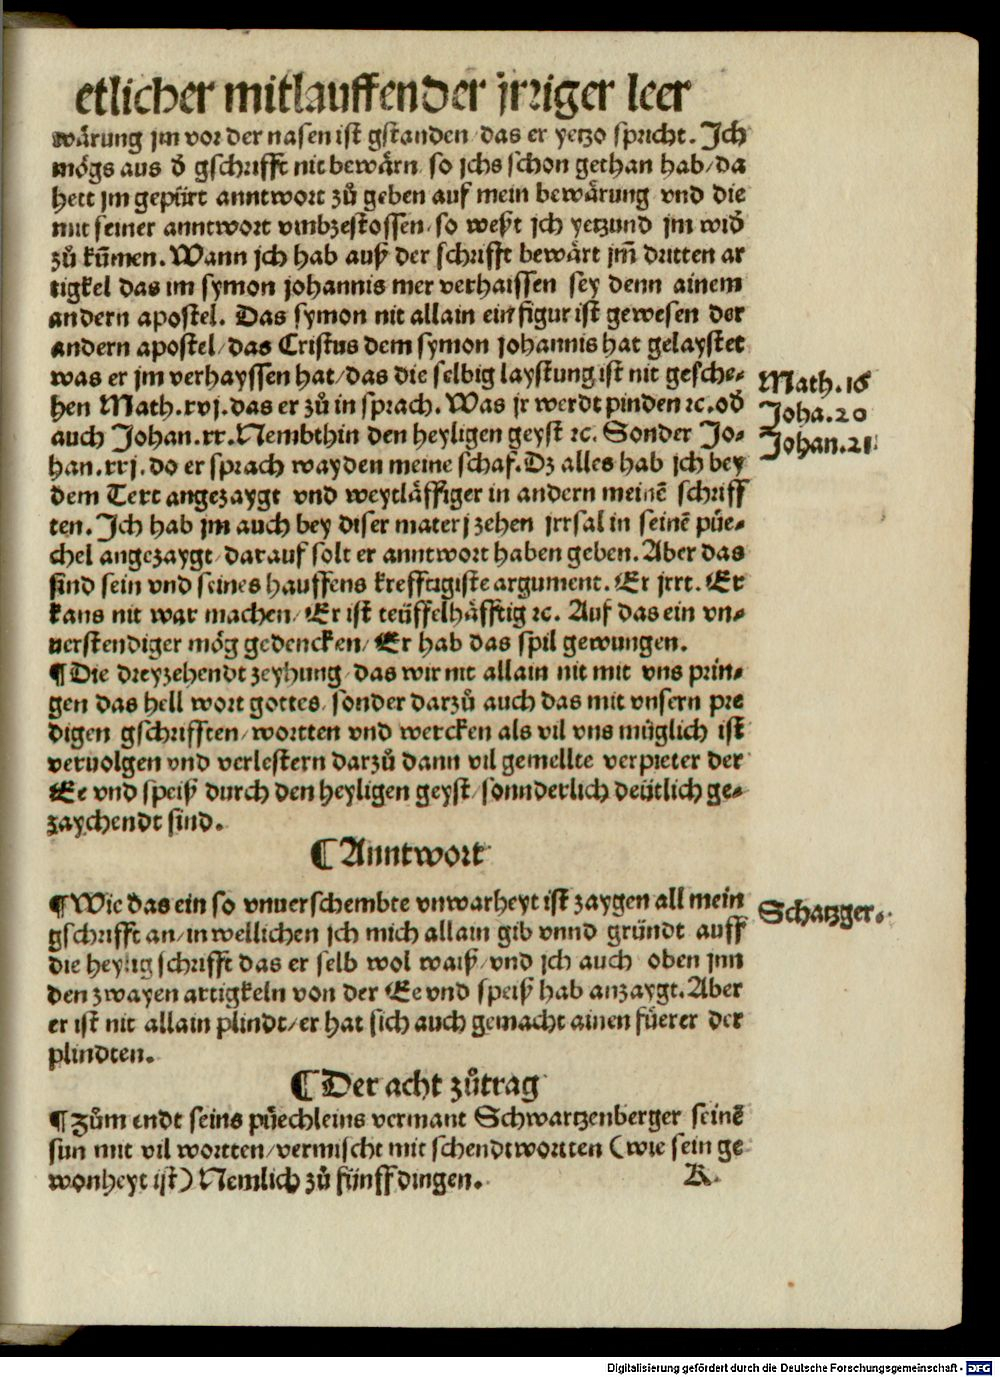 etlicher mitlauffender jrriger leer
wärung jm vor der nasen ist gstanden/ das er yetzo spricht. Jch
mögs aus d̄ gschrifft nit bewärn/ so jchs schon gethan hab/ da
hett jm gepürt anntwort zů geben auf mein bewärung vnd die
mit seiner anntwort vmbzestossen/ so weßt jch yetzund jm wid̄
zů kūmen. Wann jch hab auß der schrifft bewärt jm̄ dritten ar
tigkel das im symon johannis mer verhaissen sey denn ainem
andern apostel. Das symon nit allain ein figur ist gewesen der
andern apostel/ das Cristus dem symon johannis hat gelaystet
was er jm verhayssen hat/ das die selbig laystung ist nit gesche-
hen Math.xvj. das er zů in sprach. Was jr werdt pinden ꝛc. od̄
auch Johan.xx. Nembthin den heyligen geyst ꝛc. Sonder Jo-
han.xxj. do er sprach wayden meine schaf. Dz alles hab jch bey
dem Text angezaygt vnd weytläffiger in andern meinē schriff
ten. Jch hab jm auch bey diser materj zehen jrrsal in seinē půe-
chel angezaygt/ darauf solt er anntwort haben geben. Aber das
sind sein vnd seines hauffens krefftigiste argument. Er jrrt. Er
kans nit war machen/ Er ist teüffelhäfftig ꝛc. Auf das ein vn-
uerstendiger mög gedencken/ Er hab das spil gewungen.
¶ Die dreyzehendt zeyhung/ das wir nit allain nit mit vns prin-
gen das hell wort gottes/ sonder darzů auch das mit vnsern pre
digen gschrifften/ wortten vnd wercken als vil vns müglich ist
veruolgen vnd verlestern darzů dann vil gemellte verpieter der
Ee vnd speiß durch den heyligen geyst/ sonnderlich deütlich ge-
zaychendt sind.
¶ Anntwort
¶ Wie das ein so vnuerschembte vnwarheyt ist zaygen all mein
gschrifft an/ in wellichen jch mich allain gib vnnd gründt auff
die heylig schrifft das er selb wol waiß/ vnd jch auch oben jnn
den zwayen artigkeln von der Ee vnd speiß hab anzaygt. Aber
er ist nit allain plindt/ er hat sich auch gemacht ainen füerer der
plindten.
¶ Der acht zůtrag
¶ Zům endt seins půechleins vermant Schwartzenberger seinē
sun mit vil wortten/ vermischt mit schendtwortten (wie sein ge
wonheyt ist) Nemlich zů fünff dingen.
K
Math.16
Joha.20
Johan.21
Schatzger.
Digitalisierung gefördert durch die Deutsche Forschungsgemeinschaft - DFG